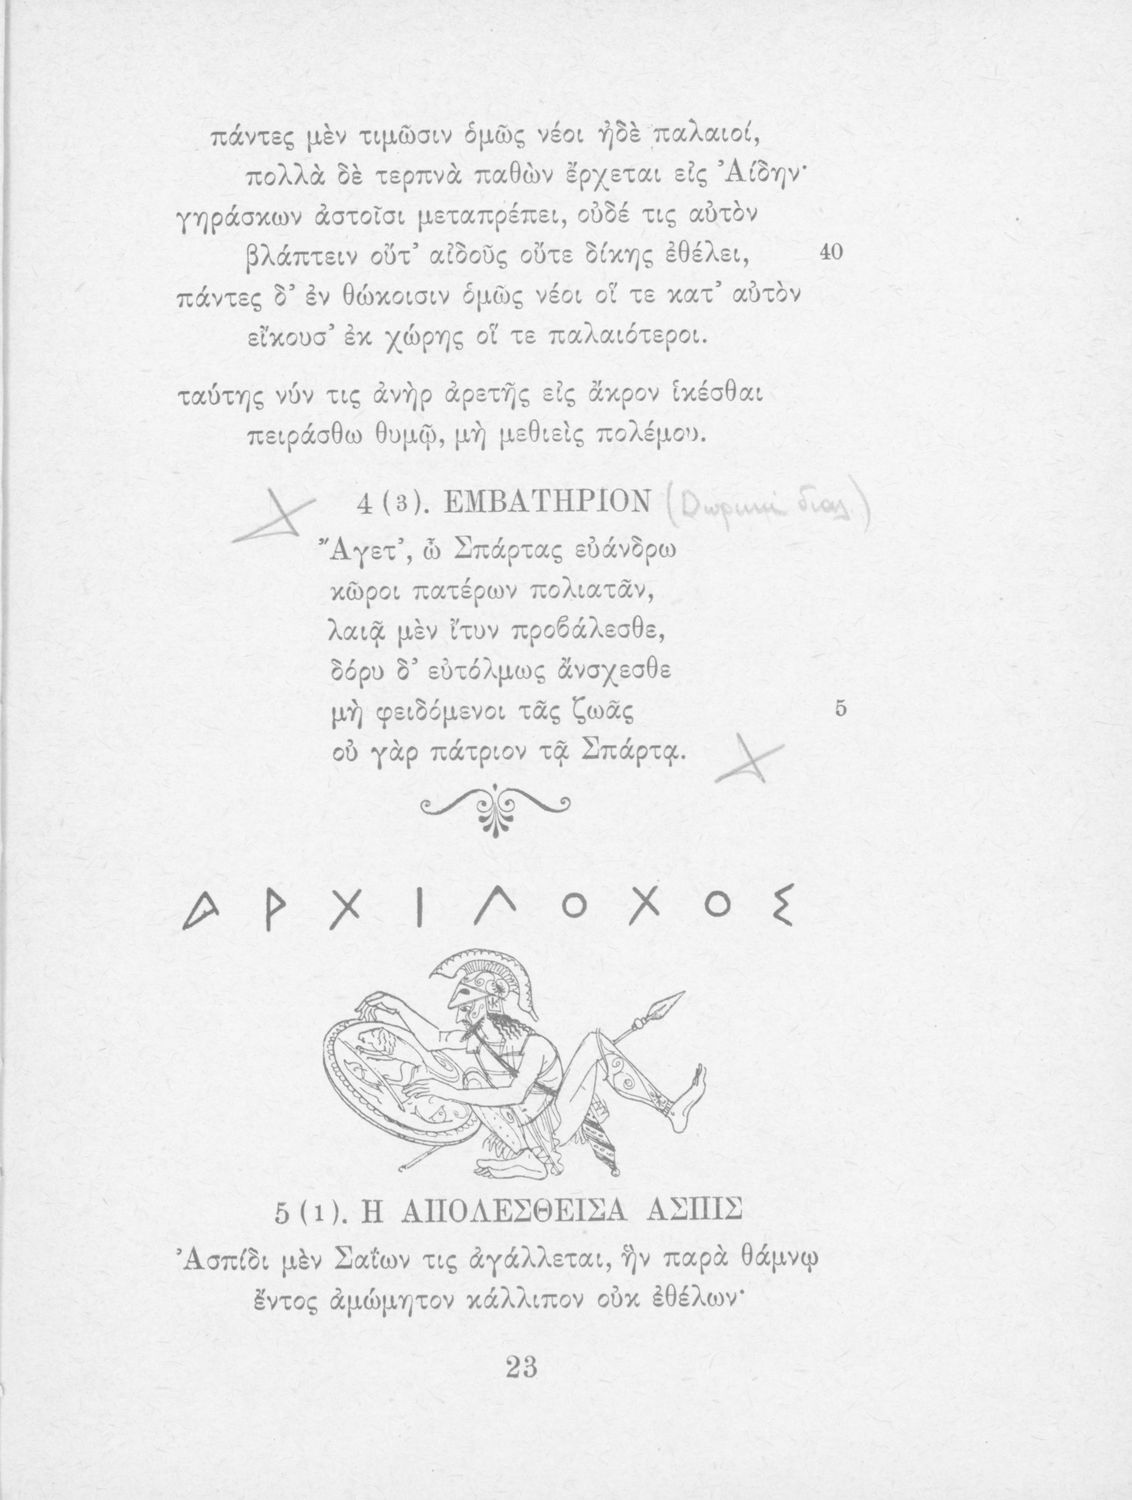 πάντες μὲν τιμῶσιν ὁμῶς νέοι ἠδὲ παλαιοί,
πολλὰ δὲ τερπνὰ παθὼν ἔρχεται εἰς Ἀίδην·
γηράσκων ἀστοῖσι μεταπρέπει, οὐδέ τις αὐτὸν
βλάπτειν οὔτ’ αἰδοῦς οὔτε δίκης ἐθέλει, 40
πάντες δ’ ἐν θώκοισιν ὁμῶς νέοι οἵ τε κατ’ αὐτὸν
εἴκουσ’ ἐκ χώρης οἵ τε παλαιότεροι.
ταύτης νύν τις ἀνὴρ ἀρετῆς εἰς ἄκρον ἱκέσθαι
πειράσθω θυμῷ, μὴ μεθιεὶς πολέμου.
4 (3). ΕΜΒΑΤΗΡΙΟΝ (Δωρική διαλ.)
Ἄγετ’, ὦ Σπάρτας εὐάνδρω
κῶροι πατέρων πολιατᾶν,
λαιᾷ μὲν ἴτυν προβάλεσθε,
δόρυ δ’ εὐτόλμως ἄνσχεσθε
μὴ φειδόμενοι τᾶς ζωᾶς 5
οὐ γὰρ πάτριον τᾷ Σπάρτᾳ.
ΑΡΧΙΛΟΧΟΣ
5 (1). Η ΑΠΟΛΕΣΘΕΙΣΑ ΑΣΠΙΣ
Ἀσπίδι μὲν Σαΐων τις ἀγάλλεται, ἣν παρὰ θάμνῳ
ἔντος ἀμώμητον κάλλιπον οὐκ ἐθέλων·
23